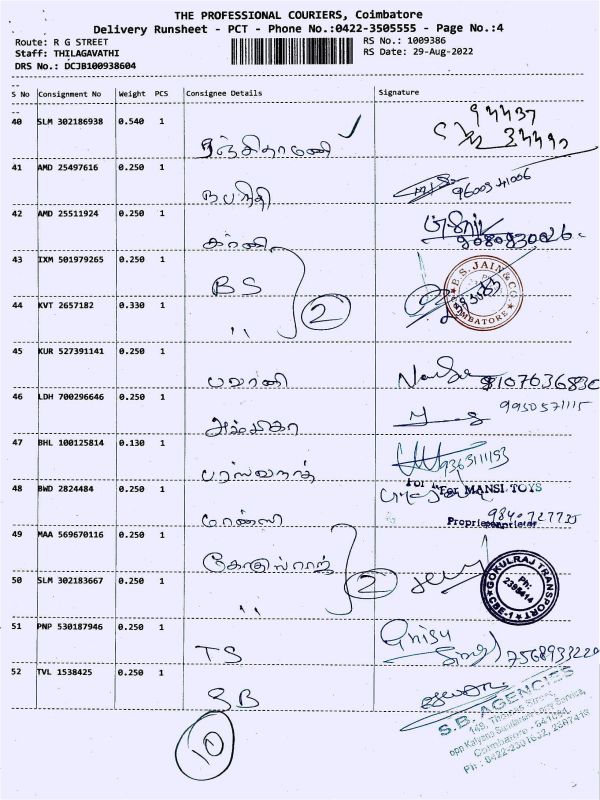 THE PROFESSIONAL COURIERS, Coimbatore
Delivery Runsheet - PCT - Phone No.:0422-3505555 - Page No.:4
Route: R G STREET
RS No.: 1009386
Staff: THILAGAVATHI
RS Date: 29-Aug-2022
DRS No.: DCJB100938604
S No Consignment No Weight PCS Consignee Details Signature
40 SLM 302186938 0.540 1
41 AMD 25497616 0.250 1
96003 41006
42 AMD 25511924 0.250 1
43 IXM 501979265 0.250 1
BS
2
B.S. JAIN & CO.
COIMBATORE
44 KVT 2657182 0.330 1
"
45 KUR 527391141 0.250 1
பவானி
8107636830
46 LDH 700296646 0.250 1
9950571115
அம்பிகா
47 BHL 100125814 0.130 1
9363111193
பரஸ்வநாத்
48 BWD 2824484 0.250 1
For MANSI TOYS
9840727735
Proprietor
மான்ஸி
49 MAA 569670116 0.250 1
கோகுல்ராஜ்
2
GOKULRAJ TRANSPORT
Ph: 2398414
CBE-1
50 SLM 302183667 0.250 1
"
51 PNP 530187946 0.250 1
TS
7568933220
52 TVL 1538425 0.250 1
SB
S.B. AGENCIES
10